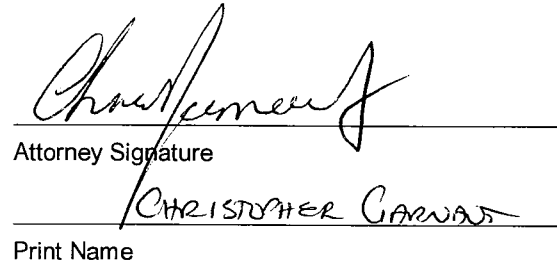 Attorney Signature
CHRISTOPHER GARNANT
Print Name